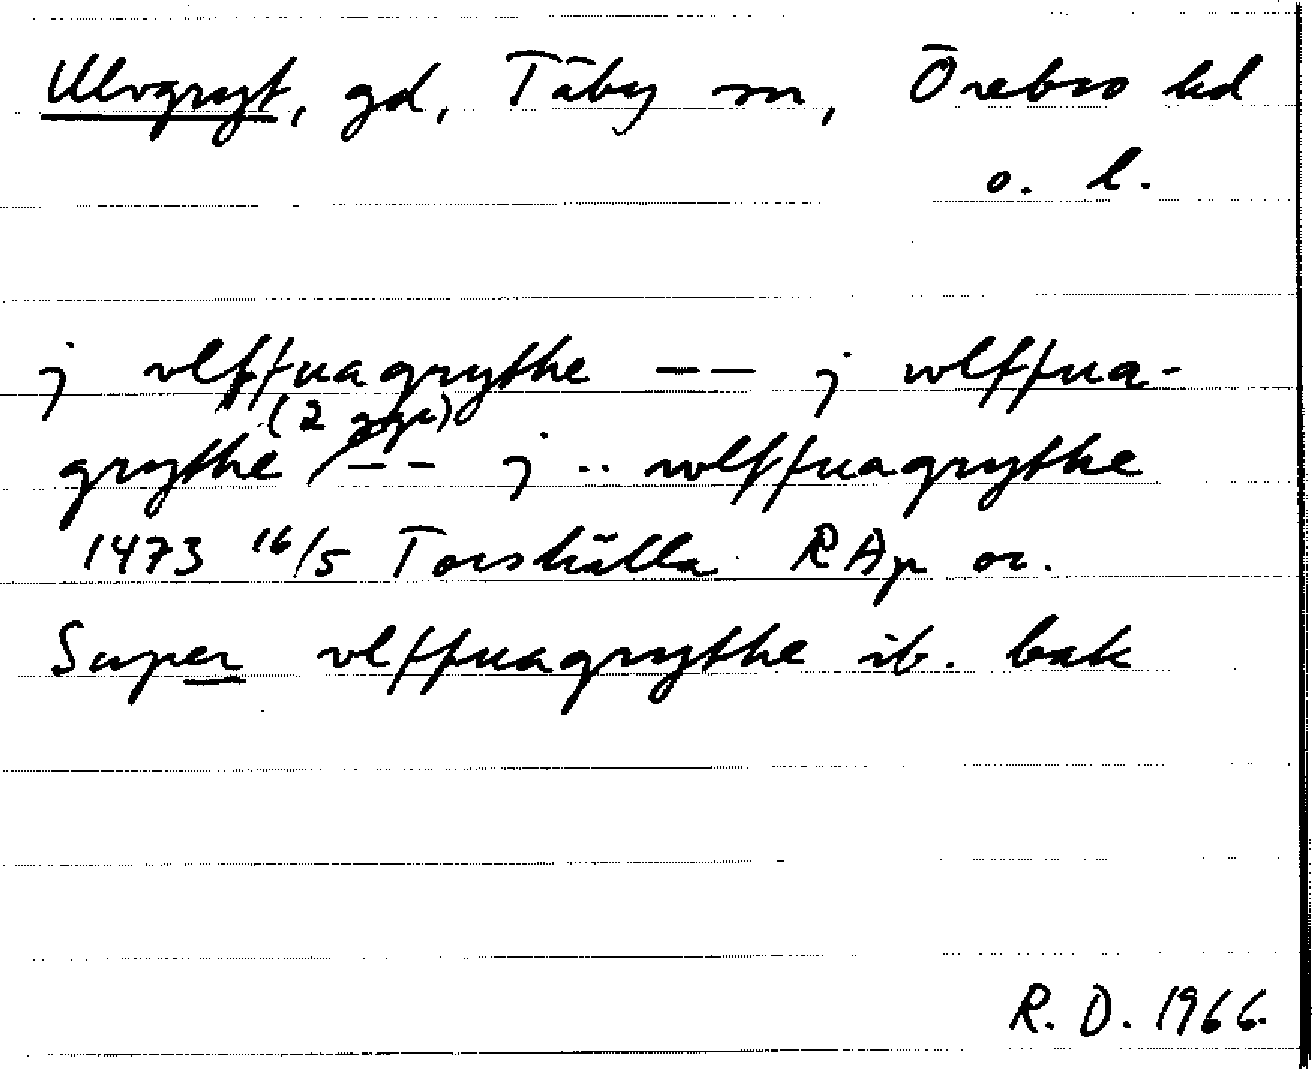 Ulvgryt, gd, Täby sn, Örebro hd
o. l.
j vlffuagrythe -- j wlffua-
(2 ggr)
grythe / -- j .. wlffuagrythe
1473 16/5 Torshälla RAp or.
Super vlffuagrythe ib. bak
R. D. 1966